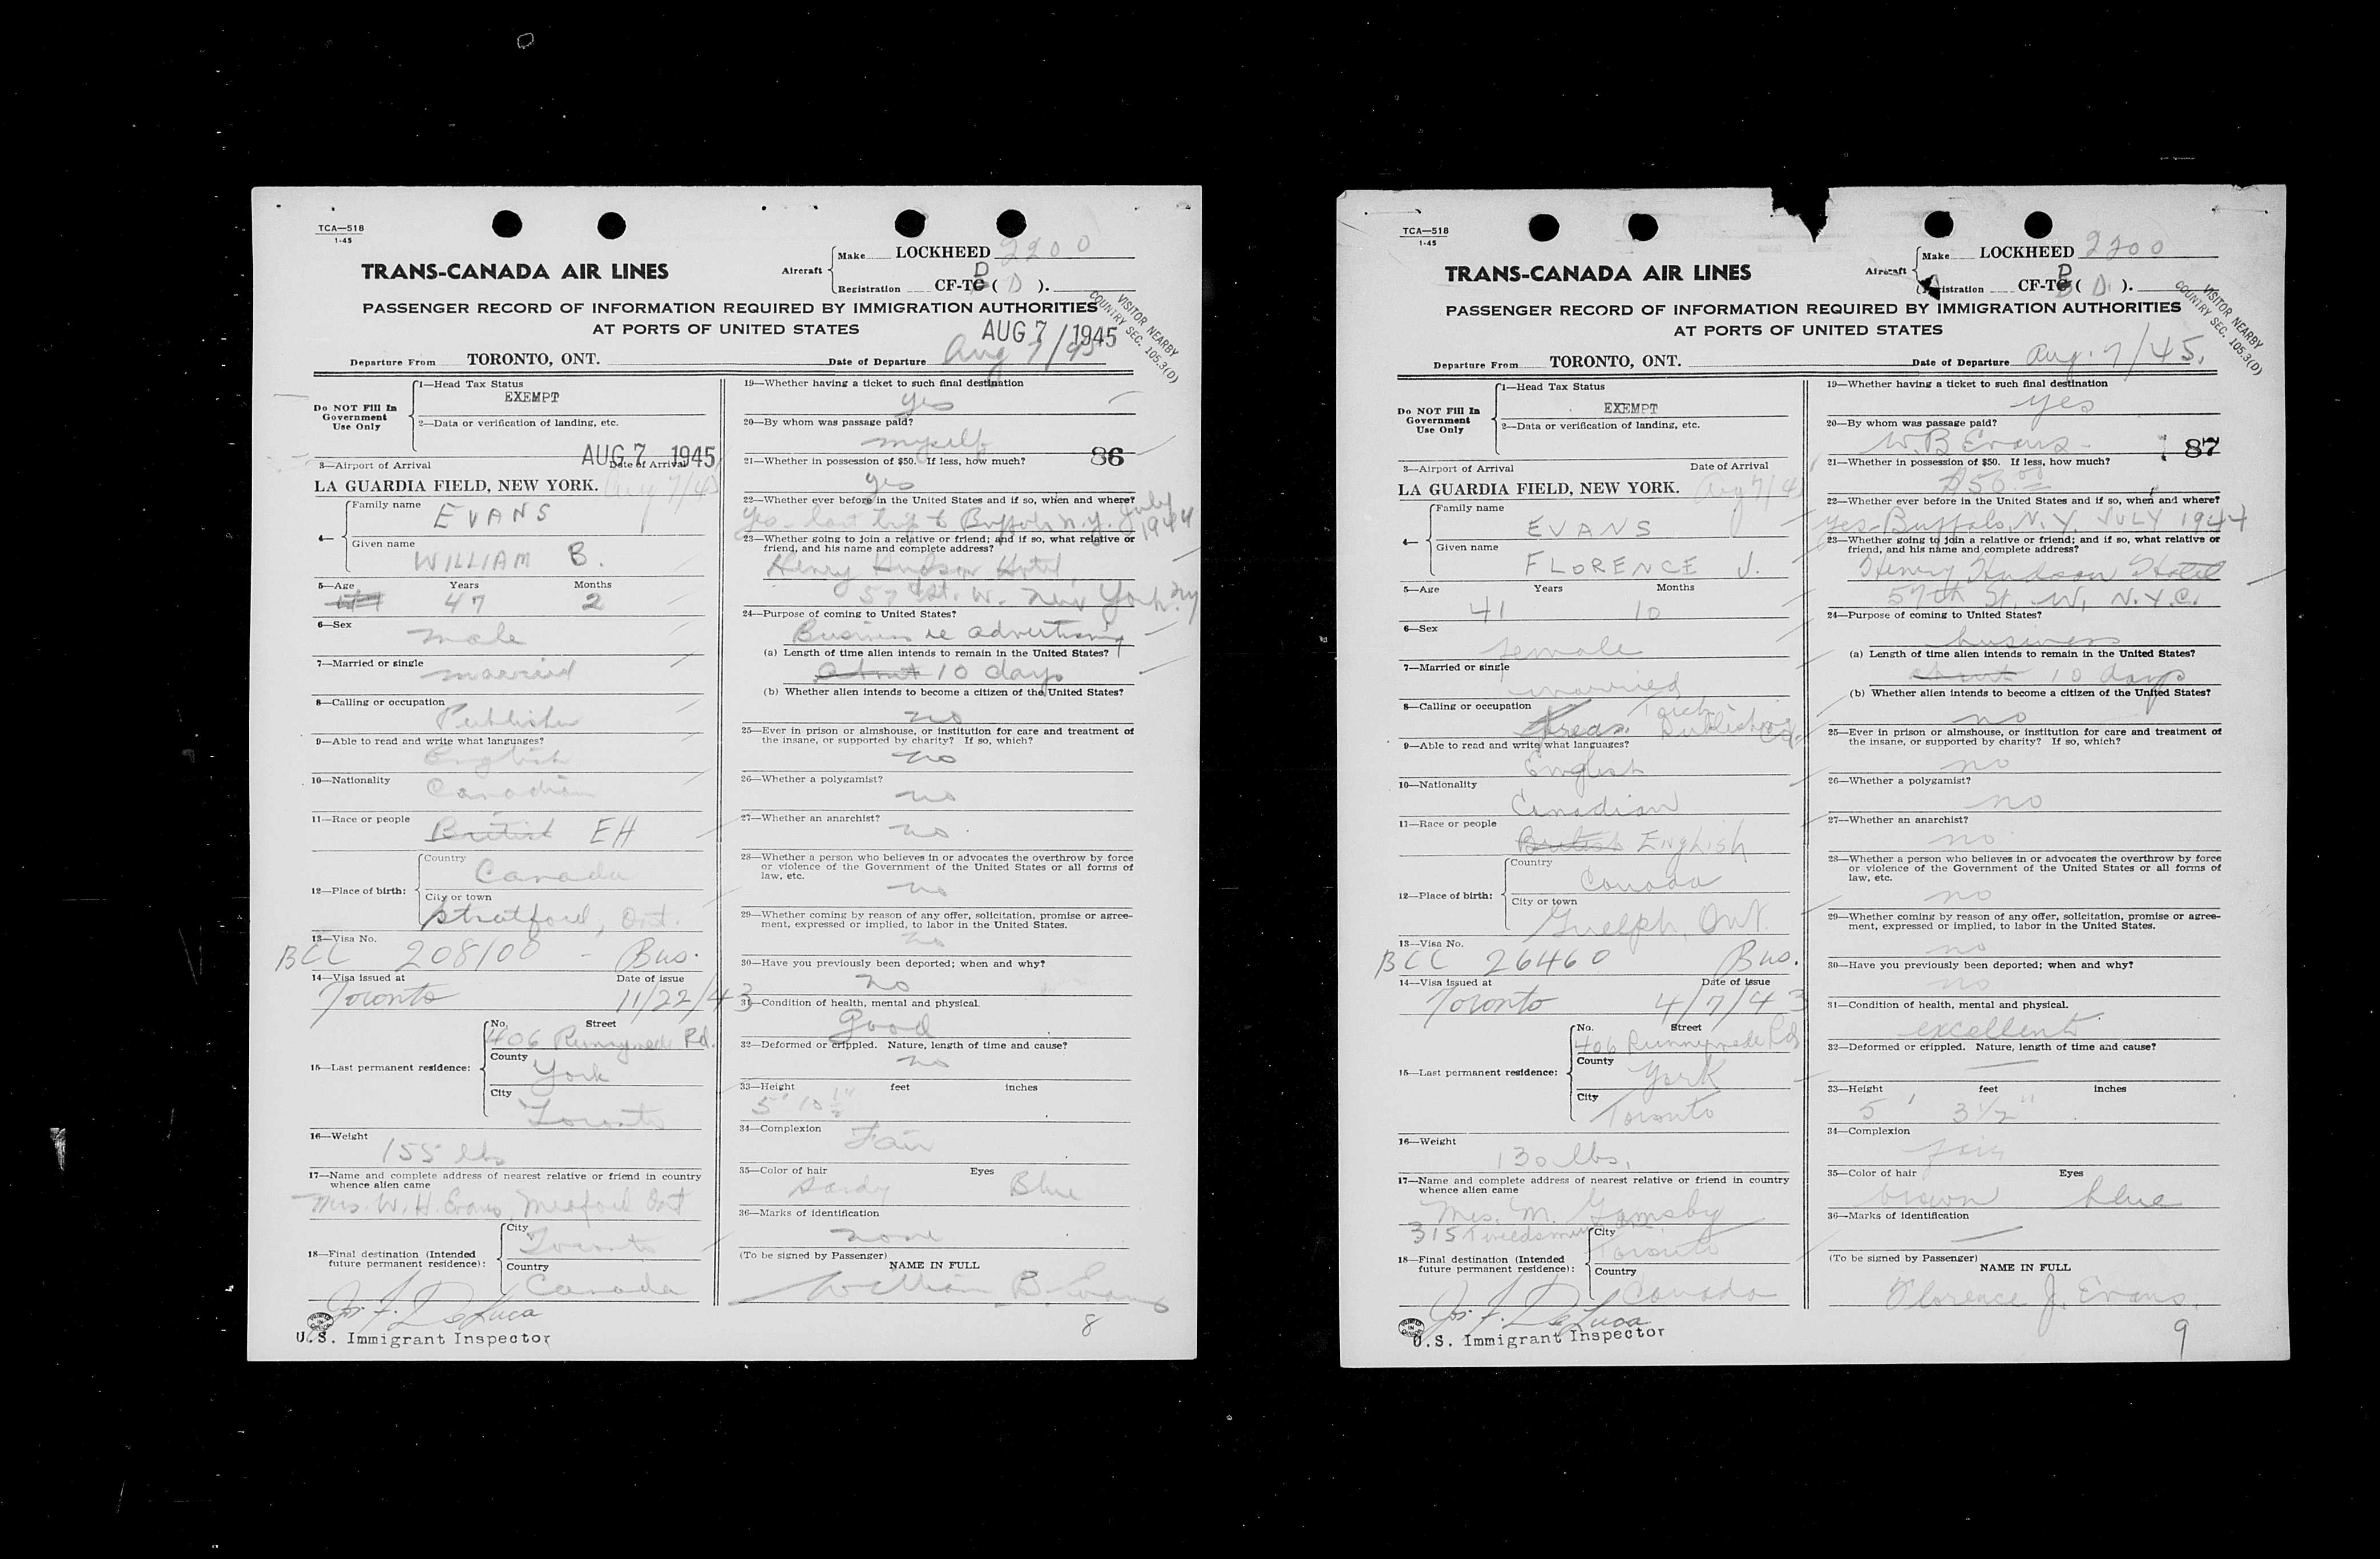 TCA—518
1-45
TRANS-CANADA AIR LINES
Aircraft
Make LOCKHEED 2200
Registration CF-TC D ( D ).
PASSENGER RECORD OF INFORMATION REQUIRED BY IMMIGRATION AUTHORITIES
AT PORTS OF UNITED STATES
VISITOR NEARBY
COUNTRY SEC. 105.3(D)
AUG 7 1945
Departure From TORONTO, ONT. Date of Departure Aug 7/45
Do NOT Fill In
Government
Use Only
1—Head Tax Status
EXEMPT
2—Data or verification of landing, etc.
AUG 7 1945
3—Airport of Arrival Date of Arrival
LA GUARDIA FIELD, NEW YORK. Aug 7/45
4—
Family name
EVANS
Given name
WILLIAM B.
5—Age Years Months
47 2
6—Sex
male
7—Married or single
married
8—Calling or occupation
Publisher
9—Able to read and write what languages?
English
10—Nationality
Canadian
11—Race or people
British EH
12—Place of birth:
Country
Canada
City or town
Stratford, Ont.
13—Visa No.
BCC 208100 - Bus.
14—Visa issued at Date of issue
Toronto 11/22/43
15—Last permanent residence:
No. Street
406 Runnymede Rd.
County
York
City
Toronto
16—Weight
155 lbs
17—Name and complete address of nearest relative or friend in country
whence alien came
Mrs. W. H. Evans, Meaford Ont
18—Final destination (Intended
future permanent residence):
City
Toronto
Country
Canada
Jos. F. DeLuca
U.S. Immigrant Inspector
19—Whether having a ticket to such final destination
yes
20—By whom was passage paid?
myself
21—Whether in possession of $50. If less, how much? 86
yes
22—Whether ever before in the United States and if so, when and where?
yes - last trip to Buffalo N.Y. July 1944
23—Whether going to join a relative or friend; and if so, what relative or
friend, and his name and complete address?
Henry Hudson Hotel
57 St. W. New York. NY
24—Purpose of coming to United States?
Business re advertising
(a) Length of time alien intends to remain in the United States?
about 10 days
(b) Whether alien intends to become a citizen of the United States?
no
25—Ever in prison or almshouse, or institution for care and treatment of
the insane, or supported by charity? If so, which?
no
26—Whether a polygamist?
no
27—Whether an anarchist?
no.
28—Whether a person who believes in or advocates the overthrow by force
or violence of the Government of the United States or all forms of
law, etc.
no
29—Whether coming by reason of any offer, solicitation, promise or agree-
ment, expressed or implied, to labor in the United States.
no
30—Have you previously been deported; when and why?
no
31—Condition of health, mental and physical.
Good
32—Deformed or crippled. Nature, length of time and cause?
no
33—Height feet inches
5' 10 1/2"
34—Complexion
Fair
35—Color of hair Eyes
Sandy Blue
36—Marks of identification
none
(To be signed by Passenger)
NAME IN FULL
William B. Evans
8
TCA—518
1-45
TRANS-CANADA AIR LINES
Aircraft
Make LOCKHEED 2200
Registration CF-TC D ( D ).
PASSENGER RECORD OF INFORMATION REQUIRED BY IMMIGRATION AUTHORITIES
AT PORTS OF UNITED STATES
VISITOR NEARBY
COUNTRY SEC. 105.3(D)
Departure From TORONTO, ONT. Date of Departure Aug. 7/45.
Do NOT Fill In
Government
Use Only
1—Head Tax Status
EXEMPT
2—Data or verification of landing, etc.
3—Airport of Arrival Date of Arrival
LA GUARDIA FIELD, NEW YORK. Aug 7/45
4—
Family name
EVANS
Given name
FLORENCE J.
5—Age Years Months
41 10
6—Sex
female
7—Married or single
married
8—Calling or occupation
Treas. Publishing Co.
9—Able to read and write what languages?
English
10—Nationality
Canadian
11—Race or people
British English
12—Place of birth:
Country
Canada
City or town
Guelph, Ont.
13—Visa No.
BCC 26460 Bus.
14—Visa issued at Date of issue
Toronto 4/7/43
15—Last permanent residence:
No. Street
406 Runnymede Rd
County
York
City
Toronto
16—Weight
130 lbs.
17—Name and complete address of nearest relative or friend in country
whence alien came
Mrs. M. Gamsby
315 Tweedsmuir
18—Final destination (Intended
future permanent residence):
City
Toronto
Country
Canada
Jos. F. DeLuca
U.S. Immigrant Inspector
19—Whether having a ticket to such final destination
yes
20—By whom was passage paid?
W.B Evans - 87
21—Whether in possession of $50. If less, how much?
$50.00
22—Whether ever before in the United States and if so, when and where?
yes-Buffalo, N.Y. JULY 1944
23—Whether going to join a relative or friend; and if so, what relative or
friend, and his name and complete address?
Henry Hudson Hotel
57th St. W, N.Y.C.
24—Purpose of coming to United States?
business
(a) Length of time alien intends to remain in the United States?
about 10 days
(b) Whether alien intends to become a citizen of the United States?
no
25—Ever in prison or almshouse, or institution for care and treatment of
the insane, or supported by charity? If so, which?
no
26—Whether a polygamist?
no
27—Whether an anarchist?
no
28—Whether a person who believes in or advocates the overthrow by force
or violence of the Government of the United States or all forms of
law, etc.
no
29—Whether coming by reason of any offer, solicitation, promise or agree-
ment, expressed or implied, to labor in the United States.
no
30—Have you previously been deported; when and why?
no
31—Condition of health, mental and physical.
excellent
32—Deformed or crippled. Nature, length of time and cause?
—
33—Height feet inches
5' 3 1/2"
34—Complexion
fair
35—Color of hair Eyes
brown blue
36—Marks of identification
—
(To be signed by Passenger)
NAME IN FULL
Florence J. Evans.
9